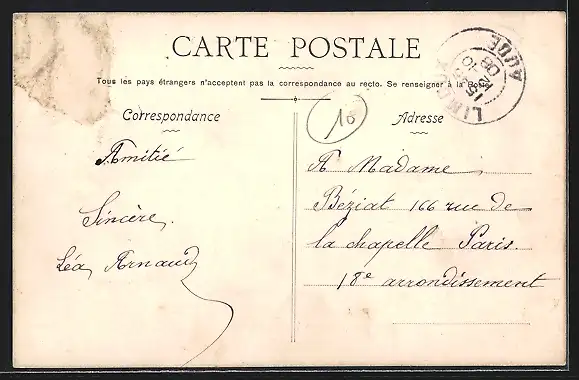 CARTE POSTALE
Tous les pays étrangers n'acceptent pas la correspondance au recto. Se renseigner à la Poste
Correspondance
Adresse
10
LIMOUX
AUDE
Amitié
Sincère,
Léa Arnaud
A Madame
Béziat 166 rue de
la chapelle Paris.
18e arrondissement